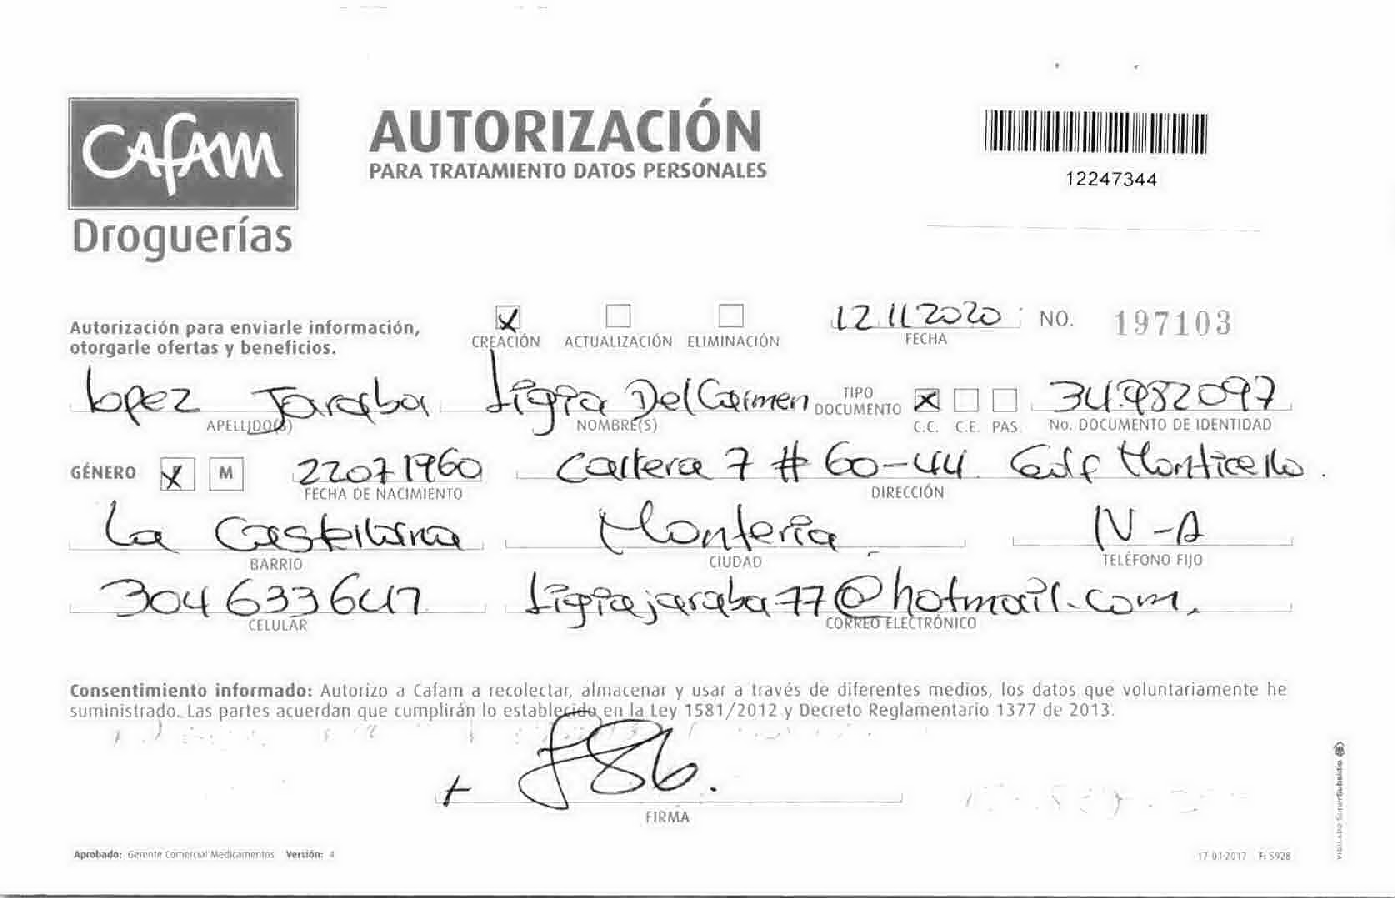 CAFAM
Droguerías
AUTORIZACIÓN
PARA TRATAMIENTO DATOS PERSONALES
12247344
Autorización para enviarle información,
otorgarle ofertas y beneficios.
X CREACIÓN ACTUALIZACIÓN ELIMINACIÓN
12 11 2020 NO. 197103
FECHA
Lopez Jaraba Ligia Del Carmen TIPO DOCUMENTO X 34.982097
APELLIDO(S) NOMBRE(S) C.C. C.E. PAS. No. DOCUMENTO DE IDENTIDAD
GÉNERO X M 22071960 Carrera 7 # 60-44 Edf Monticello
FECHA DE NACIMIENTO DIRECCIÓN
La Castellana Monteria N-A
BARRIO CIUDAD TELÉFONO FIJO
304 6336417 ligiajaraba77@hotmail.com.
CELULAR CORREO ELECTRÓNICO
Consentimiento informado: Autorizo a Cafam a recolectar, almacenar y usar a través de diferentes medios, los datos que voluntariamente he
suministrado. Las partes acuerdan que cumplirán lo establecido en la Ley 1581/2012 y Decreto Reglamentario 1377 de 2013.
FIRMA
Aprobado: Gerente Comercial Medicamentos Versión: 4